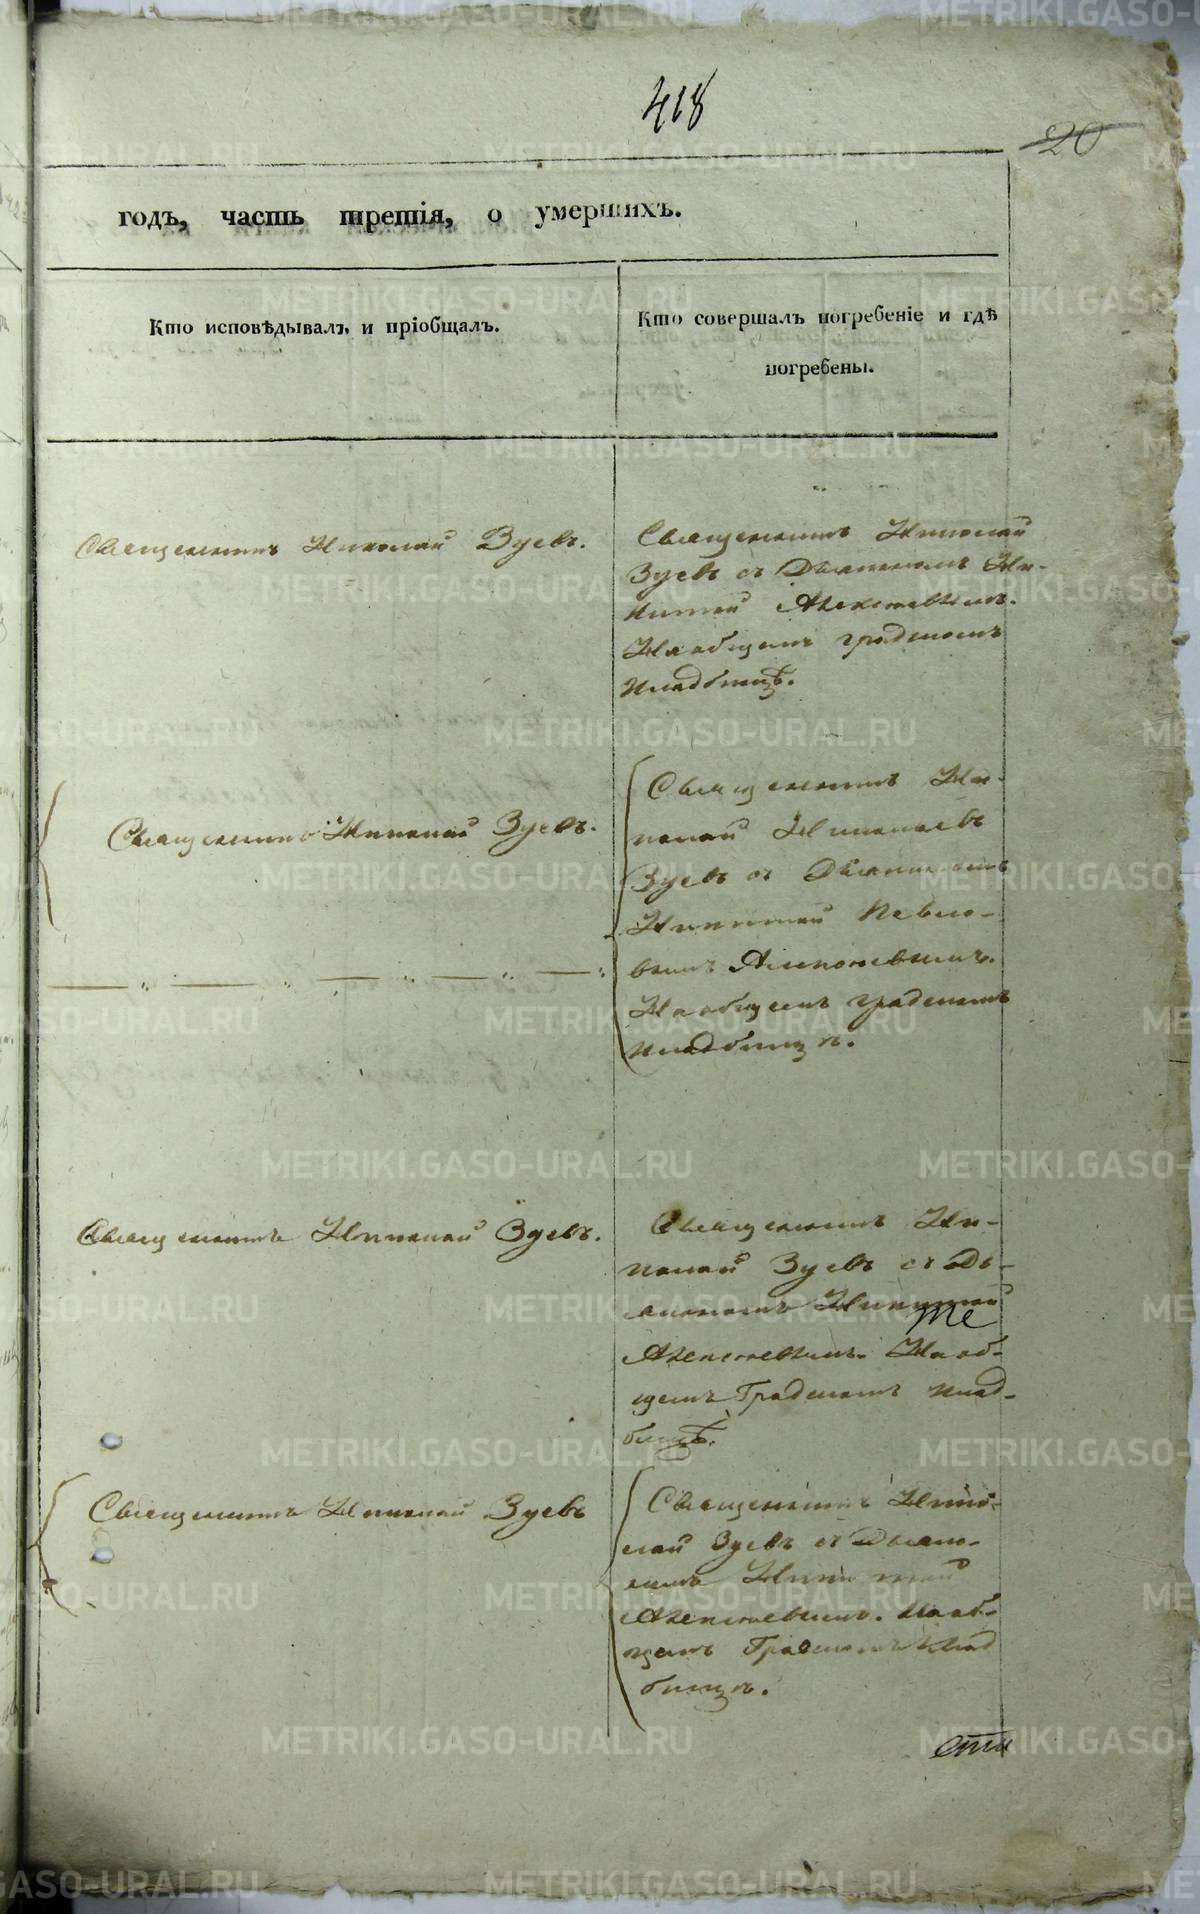 418
20
годъ, часть третія, о умершихъ.
Кто исповѣдывалъ и пріобщалъ.
Кто совершалъ погребеніе и гдѣ
погребены.
Священникъ Николай Зуевъ.
Священникъ Николай
Зуевъ съ Діакономъ Ни-
китой Алексѣевымъ.
На общемъ градскомъ
кладбищѣ.
Священникъ Николай Зуевъ.
Священникъ Ни-
колай Николаевъ
Зуевъ съ Діакономъ
Никитой Павло-
вымъ Алексѣевымъ.
На общемъ градскомъ
кладбищѣ.
Священникъ Николай Зуевъ.
Священникъ Ни-
колай Зуевъ съ Ді-
акономъ Никитой
Алексѣевымъ. На об-
щемъ Градскомъ клад-
бищѣ.
Священникъ Николай Зуевъ
Священникъ Нико-
лай Зуевъ съ Діако-
номъ Никитой
Алексѣевымъ. На об-
щемъ Градскомъ клад
бищѣ.
METRIKI.GASO-URAL.RU